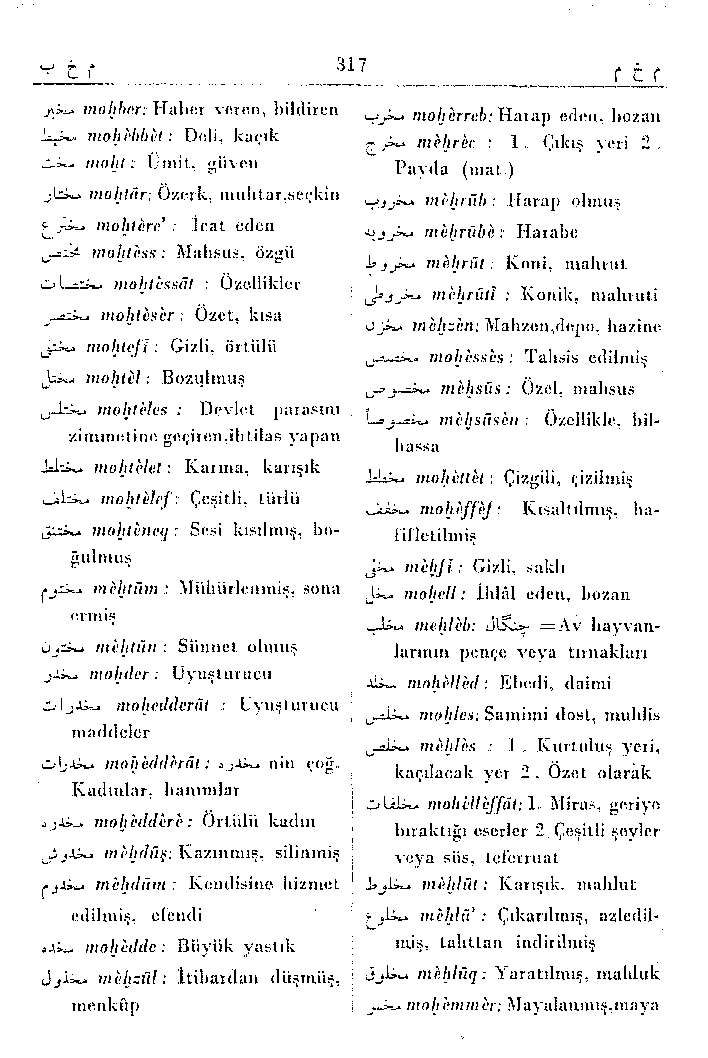 م خ ب
317
م خ م
مخبر moḫber: Haber veren, bildiren
مخبط moḫèbbèt : Deli, kaçık
مخت moḫt : Ümit, güven
مختار moḫtār: Özerk, muhtar,seçkin
مخترع moḫtère' : İcat eden
مختص moḫtèss : Mahsus, özgü
مختصات moḫtèssāt : Özellikler
مختصر moḫtèsèr : Özet, kısa
مختفی moḫtefī : Gizli, örtülü
مختل moḫtèl : Bozulmuş
مختلس moḫtèles : Devlet parasını
zimmetine geçiren,ihtilas yapan
مختلط moḫtèlet : Karma, karışık
مختلف moḫtèlef : Çeşitli, türlü
مختنق moḫtèneq : Sesi kısılmış, bo-
ğulmuş
مختوم mèḫtūm : Mühürlenmiş, sona
ermiş
مختون mèḫtūn : Sünnet olmuş
مخدر moḫder : Uyuşturucu
مخدرات moḫedderāt : Uyuşturucu
maddeler
مخدرات moḫèddèrāt : مخدره nin çoğ.
Kadınlar, hanımlar
مخدره moḫèddèrè : Örtülü kadın
مخدوش mèḫdūş: Kazınmış, silinmiş
مخدوم mèḫdūm : Kendisine hizmet
edilmiş, efendi
مخده moḫèdde : Büyük yastık
مخذول mèḫzūl : İtibardan düşmüş,
menkûp
مخرب moḫèrreb: Harap eden, bozan
مخرج mèḫrèc : 1. Çıkış yeri 2.
Payda (mat.)
مخروب mèḫrūb : Harap olmuş
مخروبه mèḫrūbè : Harabe
مخروط mèḫrūt : Koni, mahrut
مخروطی mèḫrūtī : Konik, mahruti
مخزن mèḫzèn: Mahzen,depo, hazine
مخصص moḫèssès : Tahsis edilmiş
مخصوص mèḫsūs : Özel, mahsus
مخصوصاً mèḫsūsèn : Özellikle, bil-
hassa
مخطط moḫèttèt : Çizgili, çizilmiş
مخفف moḫèffèf : Kısaltılmış, ha-
fifletilmiş
مخفی mèḫfī : Gizli, saklı
مخل moḫell : İhlâl eden, bozan
مخلب meḫlèb: چنگال =Av hayvan-
larının pençe veya tırnakları
مخلد moḫèllèd : Ebedi, daimi
مخلص moḫles: Samimi dost, muhlis
مخلص mèḫlès : 1. Kurtuluş yeri,
kaçılacak yer 2. Özet olarak
مخلفات moḫèllèffāt: 1. Miras, geriye
bıraktığı eserler 2.Çeşitli şeyler
veya süs, teferruat
مخلوط mèḫlūt : Karışık, mahlut
مخلوع mèḫlū' : Çıkarılmış, azledil-
miş, tahttan indirilmiş
مخلوق mèḫlūq : Yaratılmış, mahluk
مخمر moḫèmmèr: Mayalanmış,maya